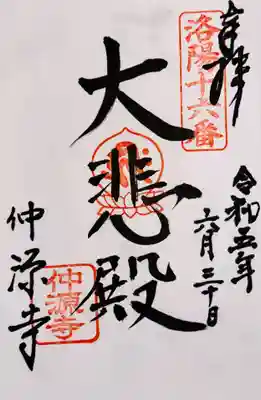 奉拝
洛陽十六番
令和五年
六月三十日
大悲殿
仲源寺
仲源寺